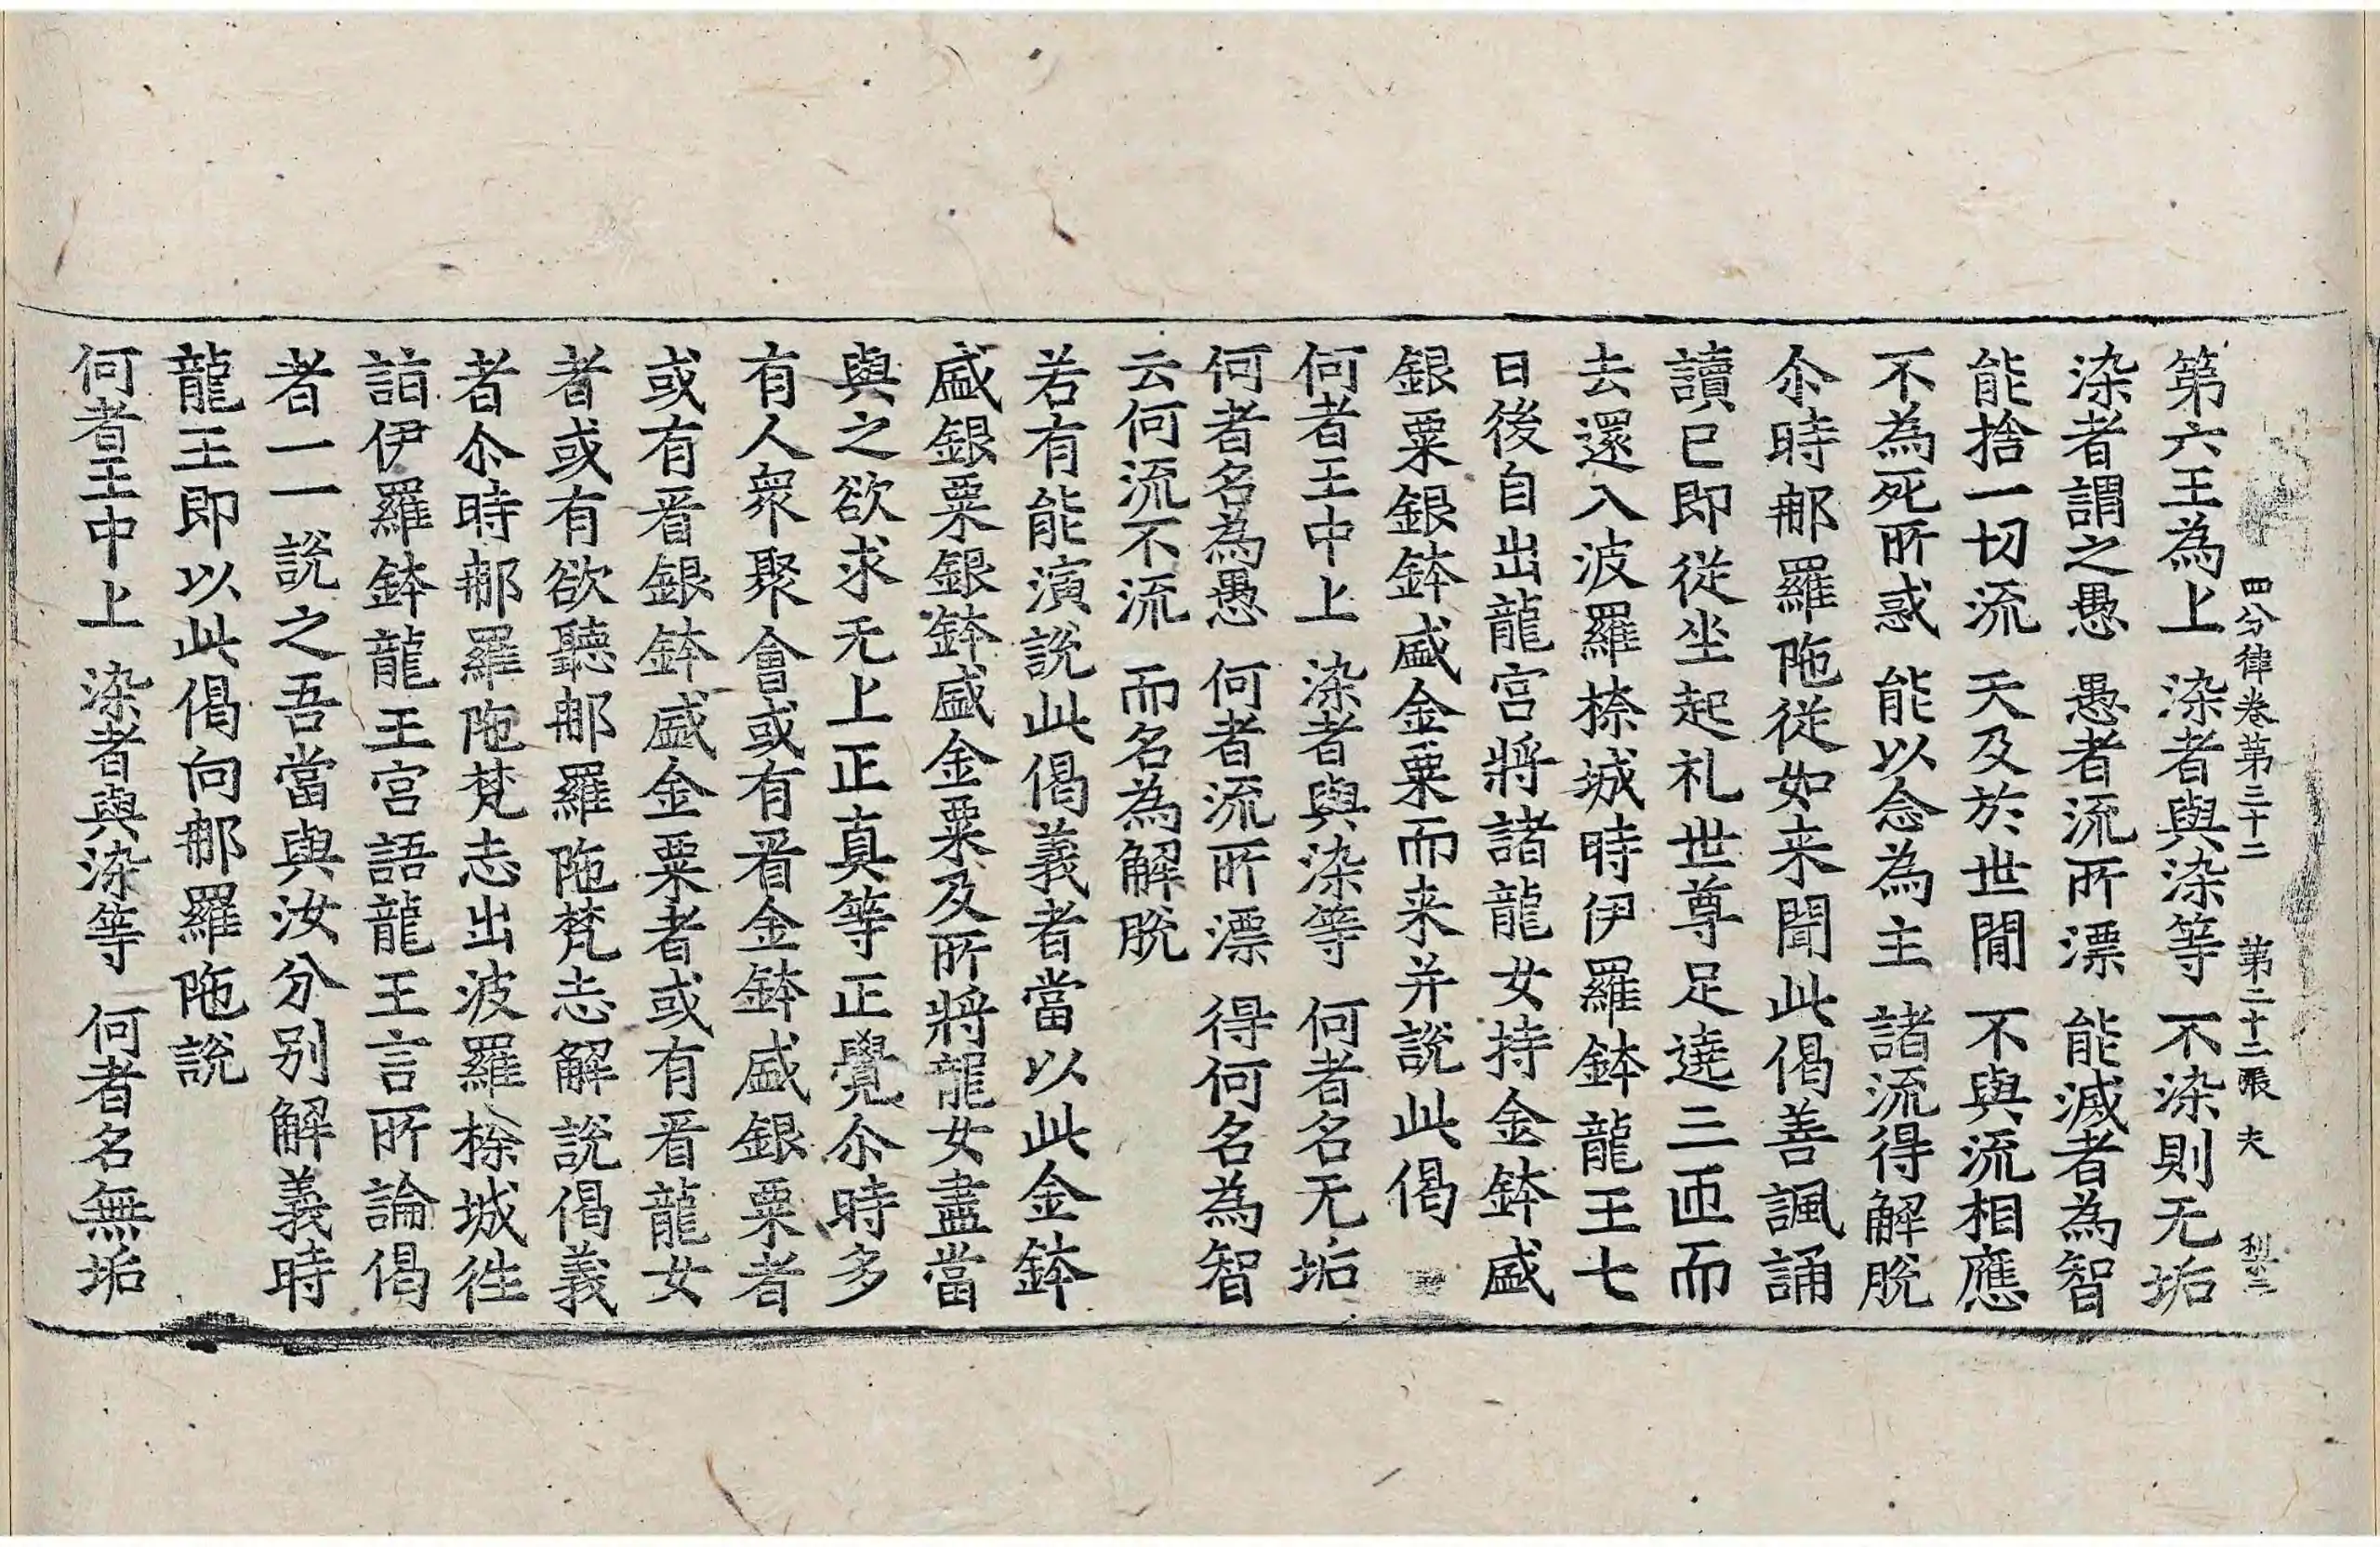 四分律卷第三十二 第二十二張 夫 利二
第六王為上 染者與染等 不染則无垢
染者謂之愚 愚者流所漂 能滅者為智
能捨一切流 天及於世閒 不與流相應
不為死所惑 能以念為主 諸流得解脫
尒時那羅陁從如来聞此偈善諷誦
讀已即從坐起礼世尊足遶三帀而
去還入波羅捺城時伊羅鉢龍王七
日後自出龍宮將諸龍女持金鉢盛
銀粟銀鉢盛金粟而来并說此偈
何者王中上 染者與染等 何者名无垢
何者名為愚 何者流所漂 得何名為智
云何流不流 而名為解脫
若有能演說此偈義者當以此金鉢
盛銀粟銀鉢盛金粟及所將龍女盡當
與之欲求无上正真等正覺尒時多
有人衆聚會或有看金鉢盛銀粟者
或有看銀鉢盛金粟者或有看龍女
者或有欲聽那羅陁梵志解說偈義
者尒時那羅陁梵志出波羅捺城往
詣伊羅鉢龍王宮語龍王言所論偈
者一一說之吾當與汝分別解義時
龍王即以此偈向那羅陁說
何者王中上 染者與染等 何者名無垢